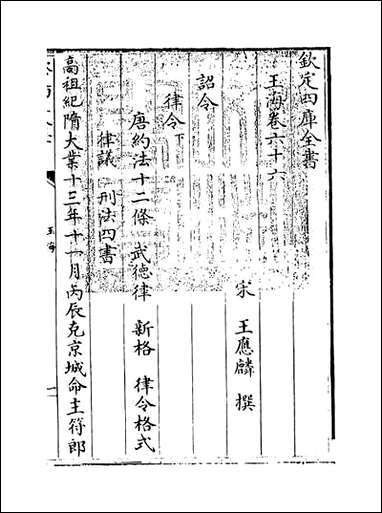 欽定四庫全書
玉海卷六十六
宋 王應麟 撰
詔令
律令下
唐約法十二條 武德律 新格 律令格式
律議 刑法四書
高祖紀隋大業十三年十一月丙辰克京城命主符郎
玉海
一